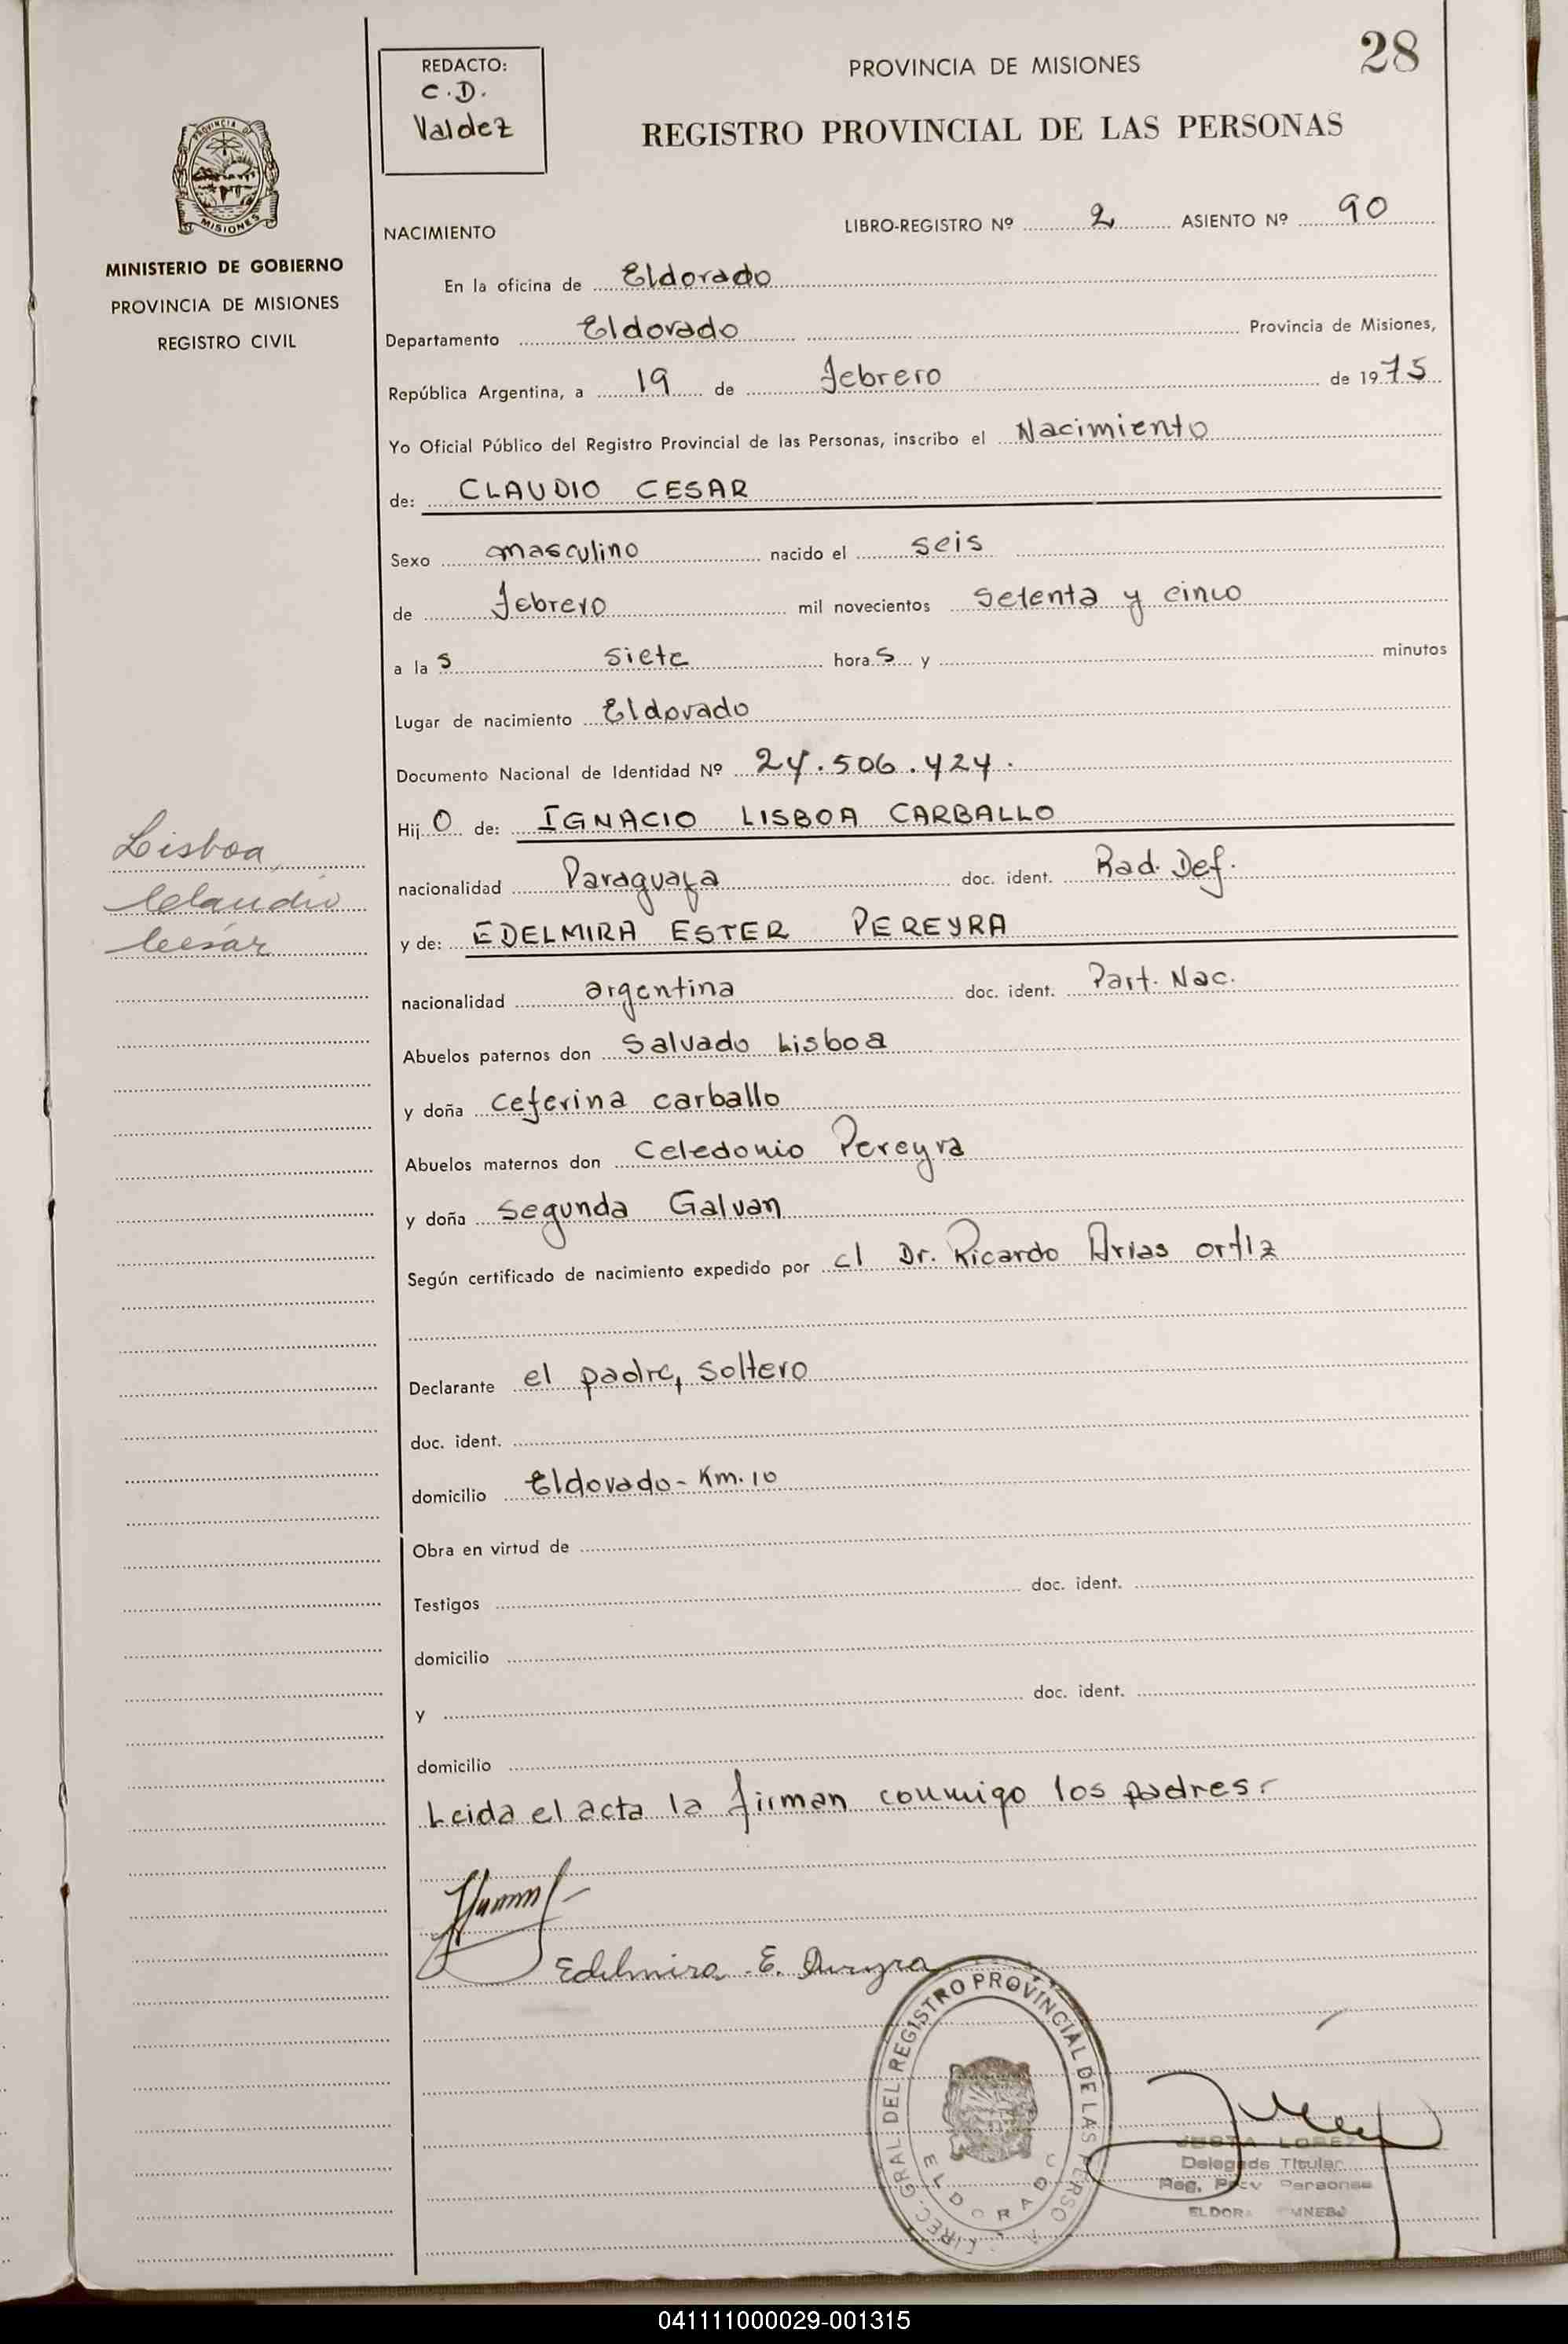 28
REDACTO:
C.D.
Valdez
PROVINCIA DE MISIONES
REGISTRO PROVINCIAL DE LAS PERSONAS
PROVINCIA D
MISIONES
MINISTERIO DE GOBIERNO
PROVINCIA DE MISIONES
REGISTRO CIVIL
NACIMIENTO LIBRO-REGISTRO Nº 2 ASIENTO Nº 90
En la oficina de Eldorado
Departamento Eldorado Provincia de Misiones,
República Argentina, a 19 de febrero de 1975
Yo Oficial Público del Registro Provincial de las Personas, inscribo el Nacimiento
de: CLAUDIO CESAR
Sexo masculino nacido el seis
de febrero mil novecientos setenta y cinco
a las siete horas y minutos
Lugar de nacimiento Eldorado
Documento Nacional de Identidad Nº 24.506.424.
Lisboa,
Claudio
César
Hijo de: IGNACIO LISBOA CARBALLO
nacionalidad Paraguaya doc. ident. Rad. Def.
y de: EDELMIRA ESTER PEREYRA
nacionalidad argentina doc. ident. Part. Nac.
Abuelos paternos don Salvado Lisboa
y doña Ceferina Carballo
Abuelos maternos don Celedonio Pereyra
y doña Segunda Galvan
Según certificado de nacimiento expedido por el Dr. Ricardo Arias Ortiz
Declarante el padre, soltero
doc. ident.
domicilio Eldorado - Km. 10
Obra en virtud de
Testigos doc. ident.
domicilio
y doc. ident.
domicilio
Leida el acta la firman conmigo los padres.-
Edelmira E. Pereyra
DIREC. GRAL. DEL REGISTRO PROVINCIAL DE LAS PERSO
ELDORADO
JUSTA LOPEZ
Delegada Titular
Reg. Prov Personas
ELDORA MNES
041111000029-001315